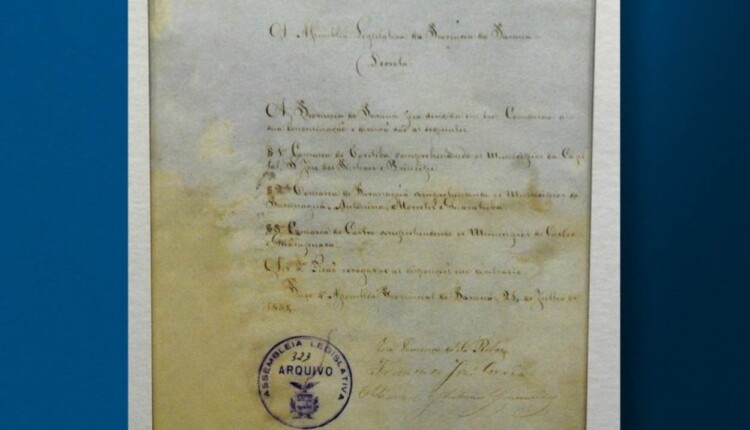 A Assemblea Legislativa da Provincia do Paraná
Decreta
A Provincia do Paraná fica dividida em tres Comarcas, a
sua denominação e divisão são as seguintes
§ 1º Comarca de Coritiba comprehendendo os Municipios da Capi
tal, S José dos Pinhaes e Principe
§ 2º Comarca de Paranaguá comprehendendo os Municipios de
Paranaguá, Antonina, Morretes e Guaratuba
§ 3º Comarca de Castro comprehendendo os Municipios de Castro
e Guarapuava
Art 2º Ficão revogadas as disposições em contrario
Paço d' Assemblea Provincial do Paraná, 21 de Julho de
ASSEMBLEIA LEGISLATIVA
323
ARQUIVO
José
Correia